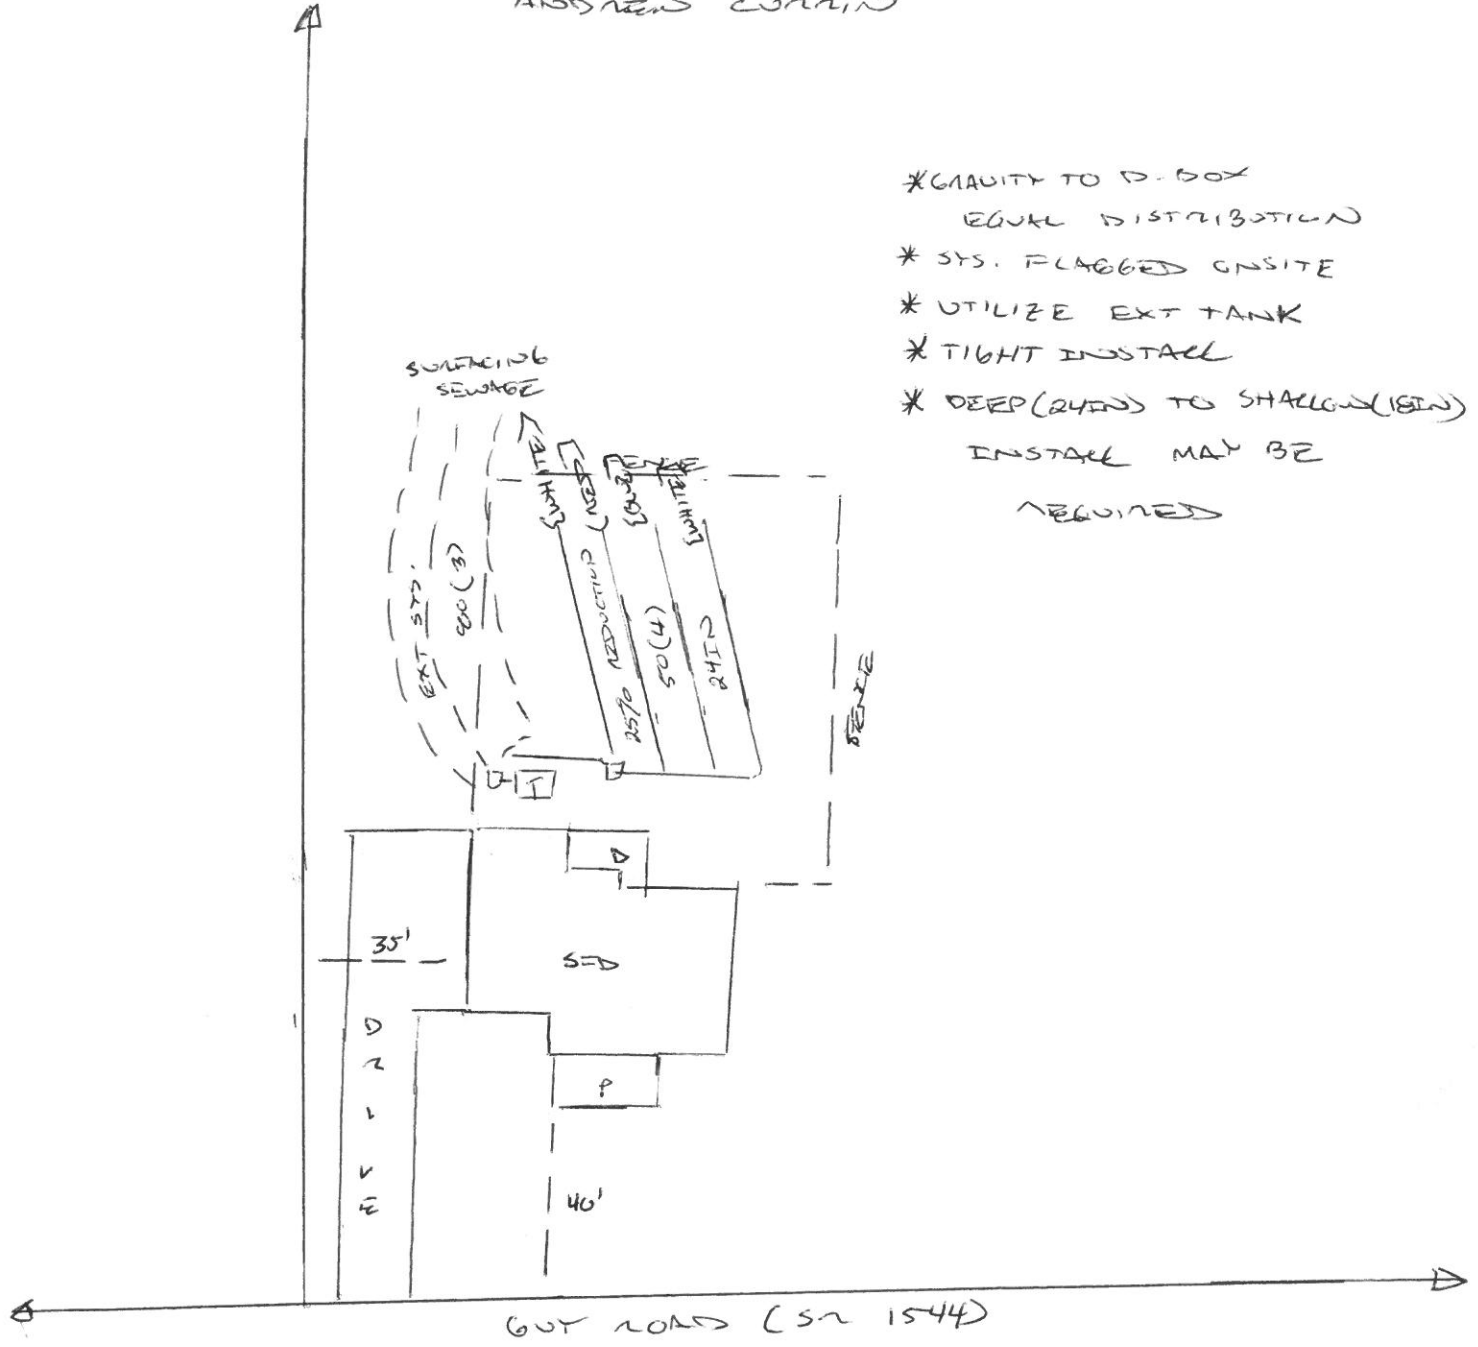 ANDREW CURRIN
*GRAVITY TO D-BOX
EQUAL DISTRIBUTION
* SYS. FLAGGED ONSITE
* UTILIZE EXT TANK
* TIGHT INSTALL
* DEEP(24IN) TO SHALLOW(18IN)
INSTALL MAY BE
REQUIRED
SURFACING
SEWAGE
[WHITE]
[RED]
[BLUE]
[WHITE]
EXT SYS.
(3)
25% REDUCTION
50(4)
24IN
FENCE
T
D
35'
SFD
DRIVE
P
40'
GUY ROAD (SR 1544)